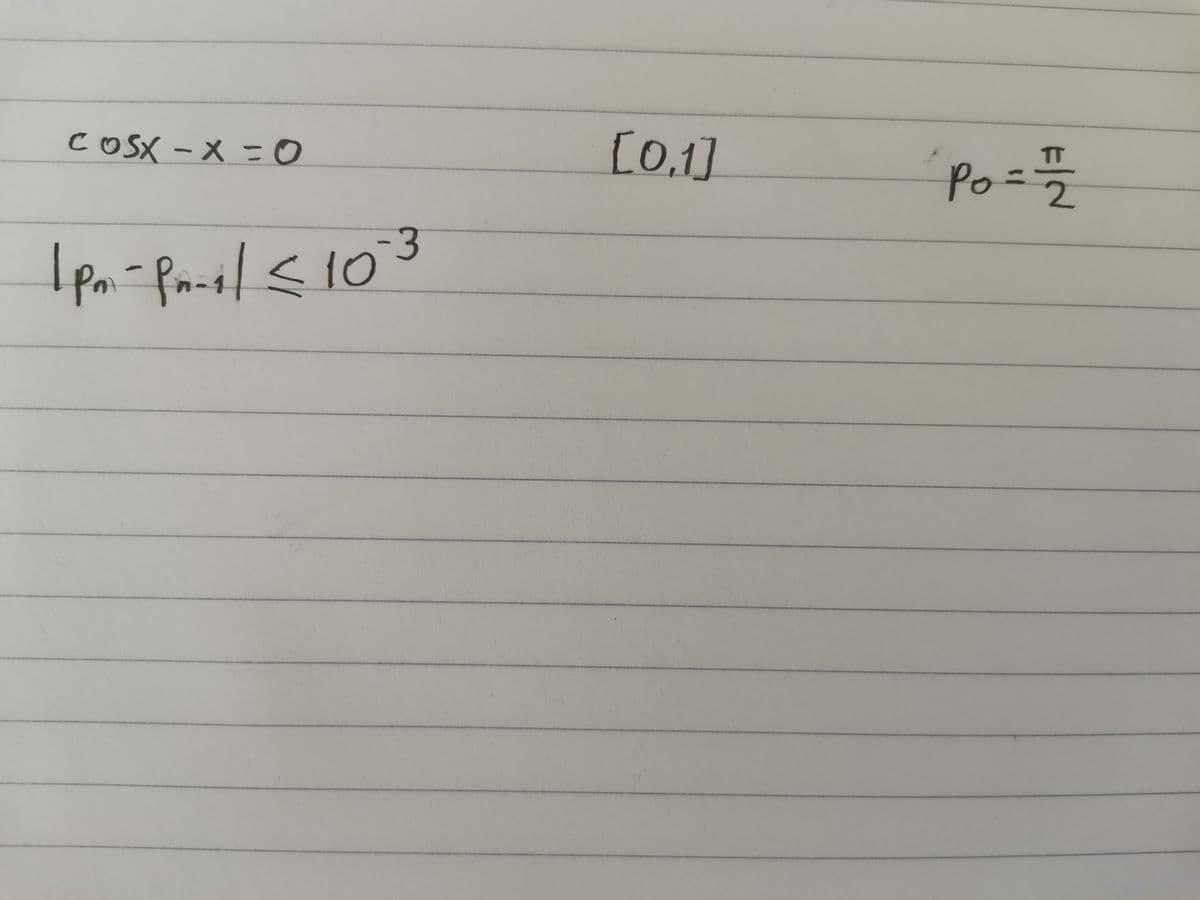 cosx - x = 0 [0,1] p₀ = π/2
|pₙ - pₙ₋₁| ≤ 10⁻³